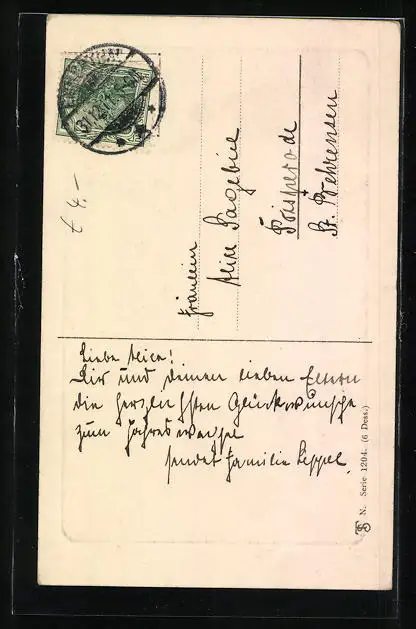 Fräulein
Alice Tagebiel
Voisperode
St. Behrensen
€ 4.-
Liebe Alice!
Dir und deinen lieben Eltern
die herzlichsten Glückwünsche
zum Jahreswechsel
sendet Familie Keppel.
N. Serie 1204. (6 Dess.)